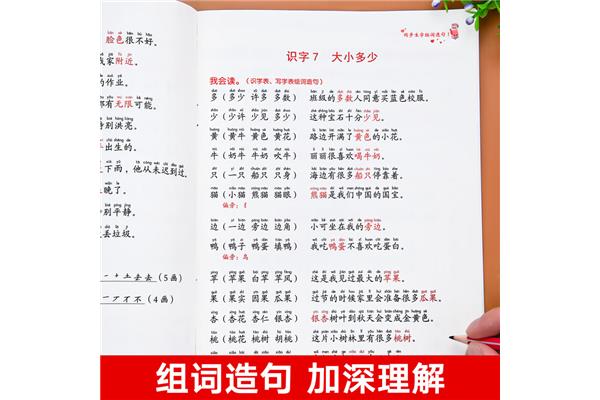 脸色很不好。
我家附近。
的作业。
都有无限可能。
特别洪亮。
出生的。
上下雨，他从未迟到过。
晚了。
别平静。
丢垃圾。
一十土去去（5画）
一ア才不（4画）
同步生字组词造句
识字7 大小多少
我会读。（识字表、写字表组词造句）
多（多少 许多 多数） 班级的多数人同意买蓝色校服。
少（少许 少见 多少） 这种宝石十分少见。
黄（黄牛 黄色 黄花） 路边开满了黄色的小花。
牛（奶牛 水牛 吹牛） 丽丽很喜欢喝牛奶。
只（一只 船只 只身） 海边有很多船只停靠着。
猫（小猫 熊猫 猫眼） 熊猫是我们中国的国宝。
偏旁：犭
边（一边 旁边 边角） 小可坐在我的旁边。
鸭（鸭子 鸭蛋 填鸭） 我吃鸭蛋不喜欢吃蛋白。
偏旁：鸟
苹（苹果 白苹 苹风） 这是我见过最大的苹果。
果（果实 因果 瓜果） 过节的时候家里会准备很多瓜果。
杏（杏花 杏仁 银杏） 银杏树叶到秋天会变成金黄色。
桃（桃花 桃树 胡桃） 这片小树林里有很多桃树。
组词造句 加深理解